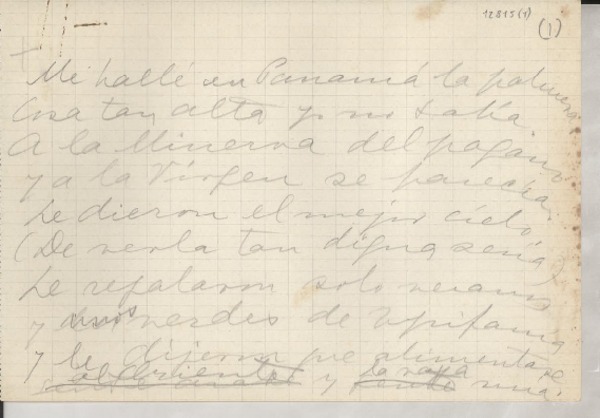 12815(1)
(1)
Me hallé en Panamá la palmera.
Cosa tan alta yo no sabía.
A la Minerva del pagano
y a la Virgen se parecía.
Le dieron el mejor cielo
(De verla tan digna sería)
Le regalaron solo veranos
y unos verdes de Epifanía
y le dijeron que alimentase
al Oriente y la raza mía.